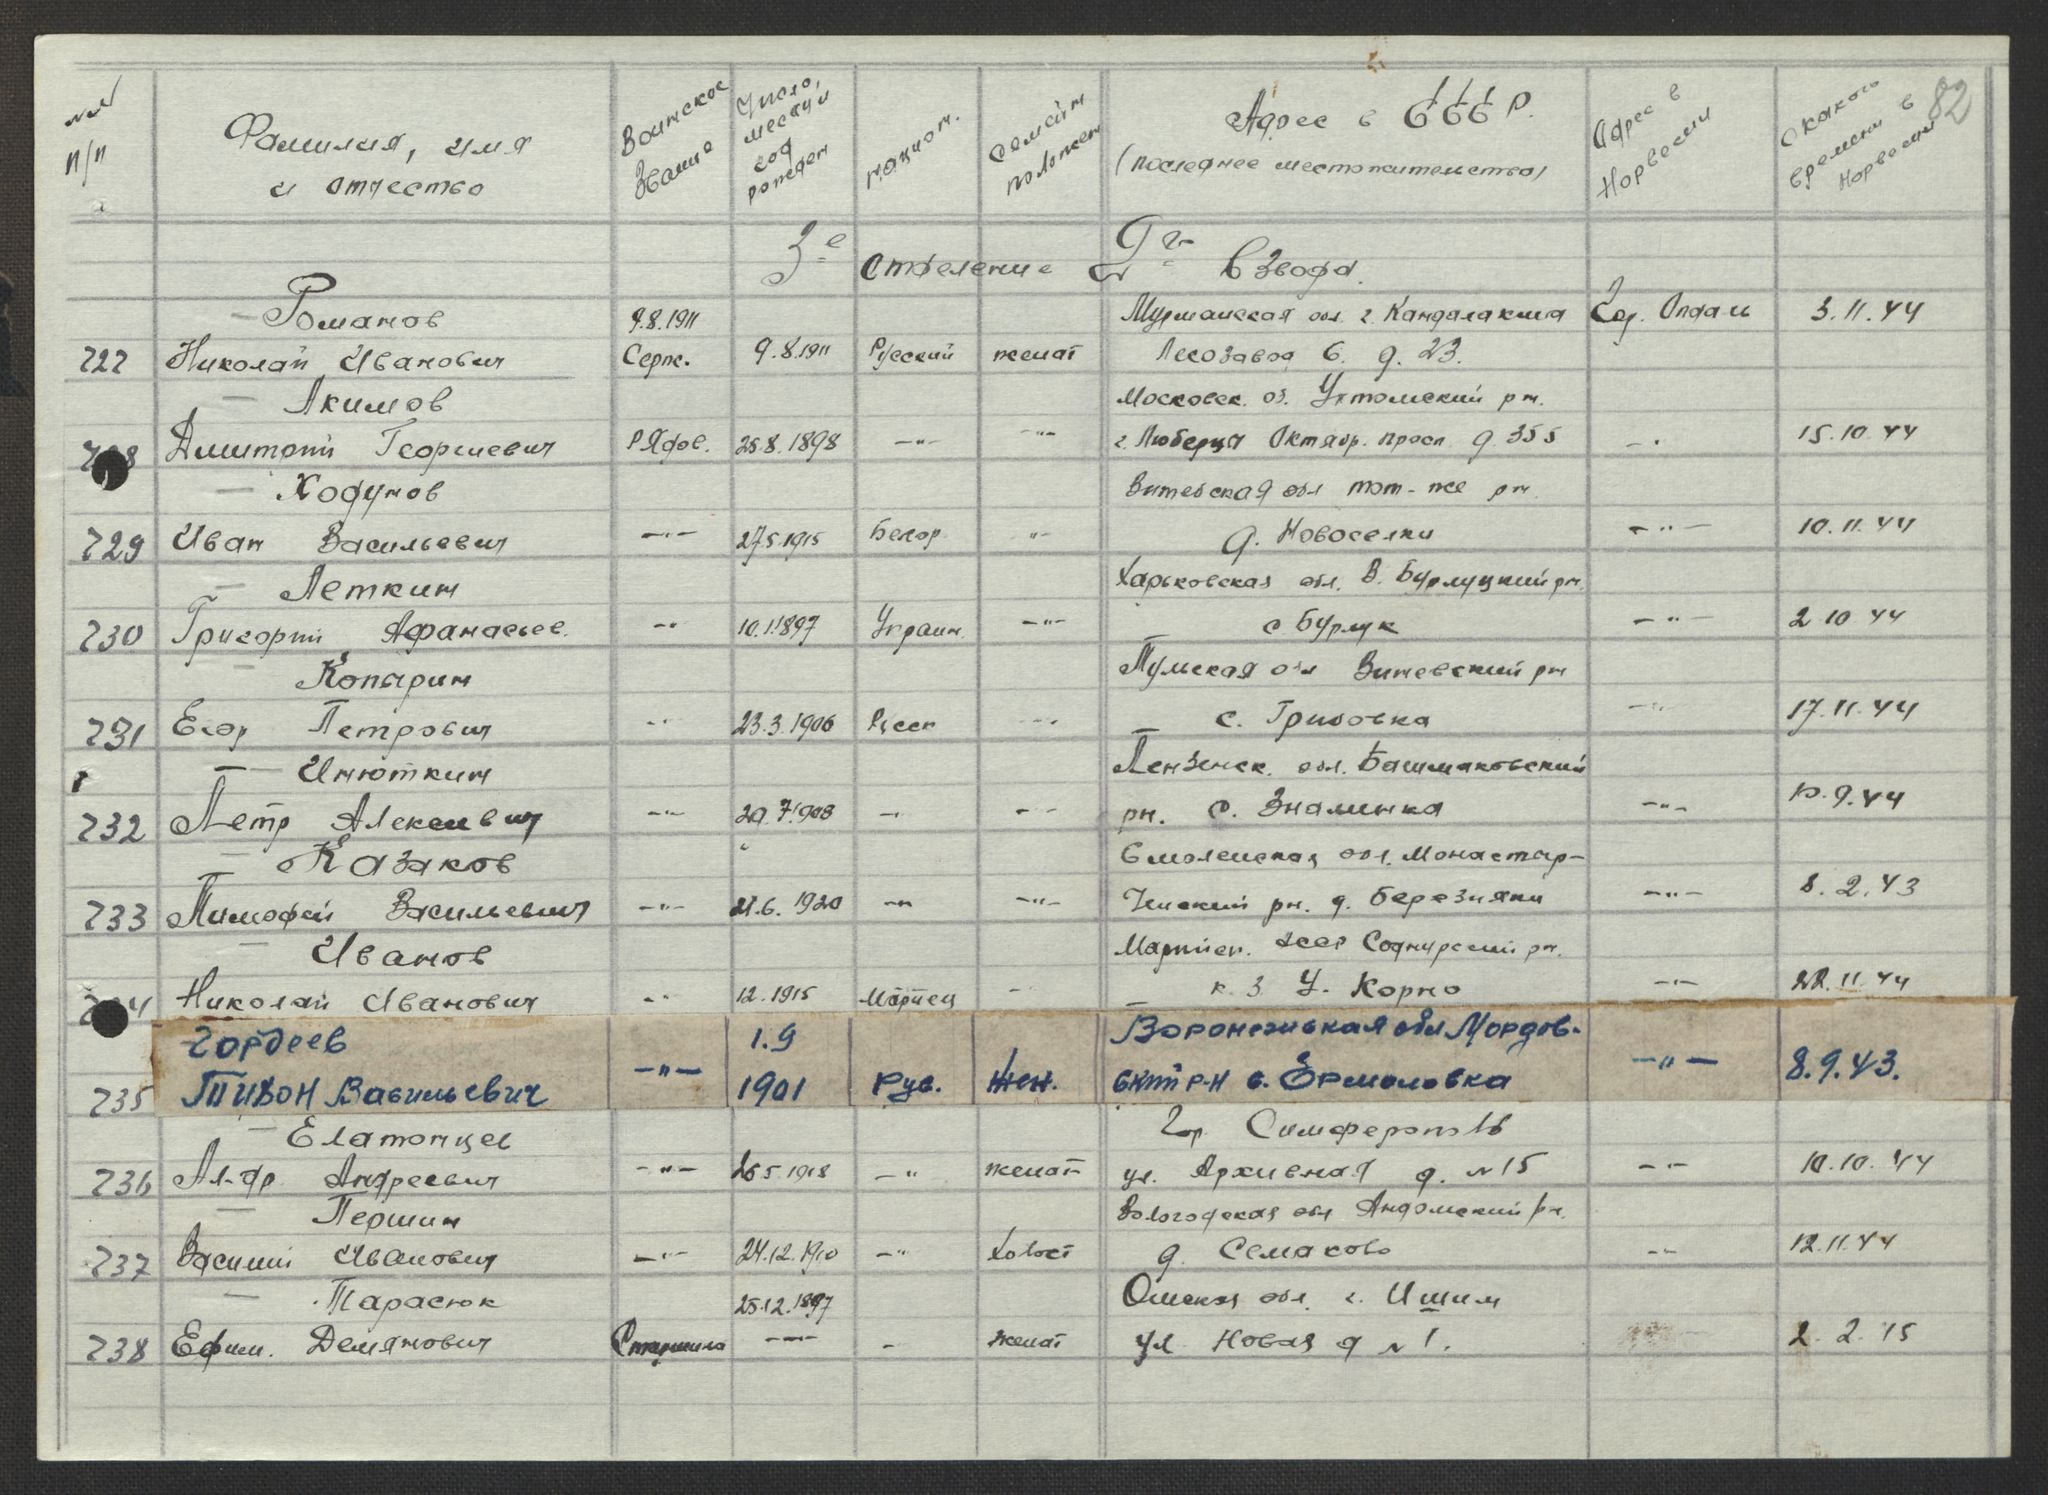 82
№№ п/п
Фамилия, имя и отчество
Воинское звание
Число, месяц и год рожден
национ.
Семейн положен
Адрес в СССР. (последнее местожительство)
Адрес в Норвегии
С какого времени в Норвегии
3-е отделение 2-го взвода.
Романов 9.8.1911 Мурманская обл. г. Кандалакша Гор. Опдаль 3.11.44
727 Николай Иванович Серж. 9.8.1911 Русский женат Лесозавод 6. д. 23.
Акимов Московск. об. Ухтомский рн.
728 Дмитрий Георгиевич Рядов. 25.8.1898 -"- -"- г. Люберцы Октябр. просп д. 355 -"- 15.10.44
Ходунов Витебская обл тот-же рн.
729 Иван Васильевич -"- 27.5.1915 Белор -"- д. Новоселки -"- 10.11.44
Леткин Харьковская обл. В. Бурлуцкий рн.
730 Григорий Афанасьев. -"- 10.1.1897 Украин. -"- с Бурлук -"- 2 10 44
Копырин Тульская обл рн
731 Егор Петрович -"- 23.3.1906 Русск -"- с. Грибовка -"- 17.11.44
Инюткин Пензенск. обл. Башмаковский
732 Петр Алексеевич -"- 29.7.1908 -"- -"- рн. с. Знаминка -"- 10.9.44
Казаков Смоленская обл. Монастыр-
733 Тимофей Васильевич -"- 21.6.1920 -"- -"- щинский рн. д. Березняки -"- 8.2.43
Иванов Марийск. рн.
734 Николай Иванович -"- 12.1915 Мариец - к. з У. Корно -"- 22.11.44
Гордеев 1.9 Воронежская обл Мордов-
735 Тихон Васильевич -"- 1901 Рус. Жен. ский р-н с. Ермоловка -"- 8.9.43.
Елатонцев Гор. Симферополь
736 Ал-др. Андреевич -"- 26.5.1918 -"- женат ул. Архивная д. №15 -"- 10.10.44
Першин Вологодская обл Андомский рн.
737 Василий Иванович -"- 24.12.1910 -"- Холост д. Семаково -"- 12.11.44
Тарасюк 25.12.1897 Омская обл. г. Ишим
738 Ефим. Демянович Старшина -"- - женат ул Новая д №1. 2.2.15